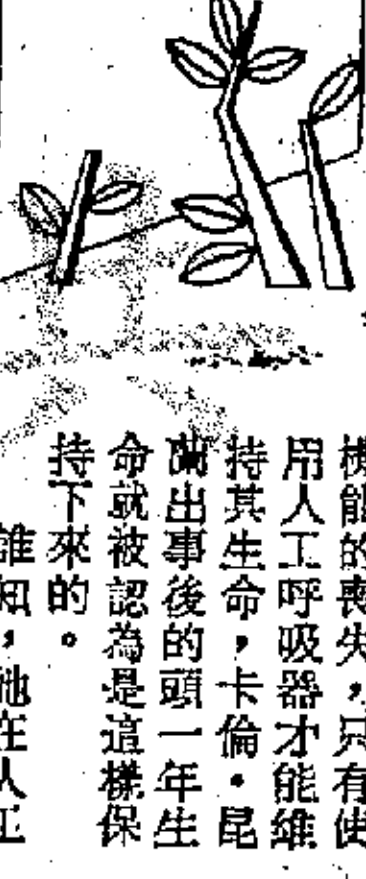 機能的喪失，只有使
用人工呼吸器才能維
持其生命，卡倫・昆
蘭出事後的頭一年生
命就被認為是這樣保
持下來的。
誰知，她在人工